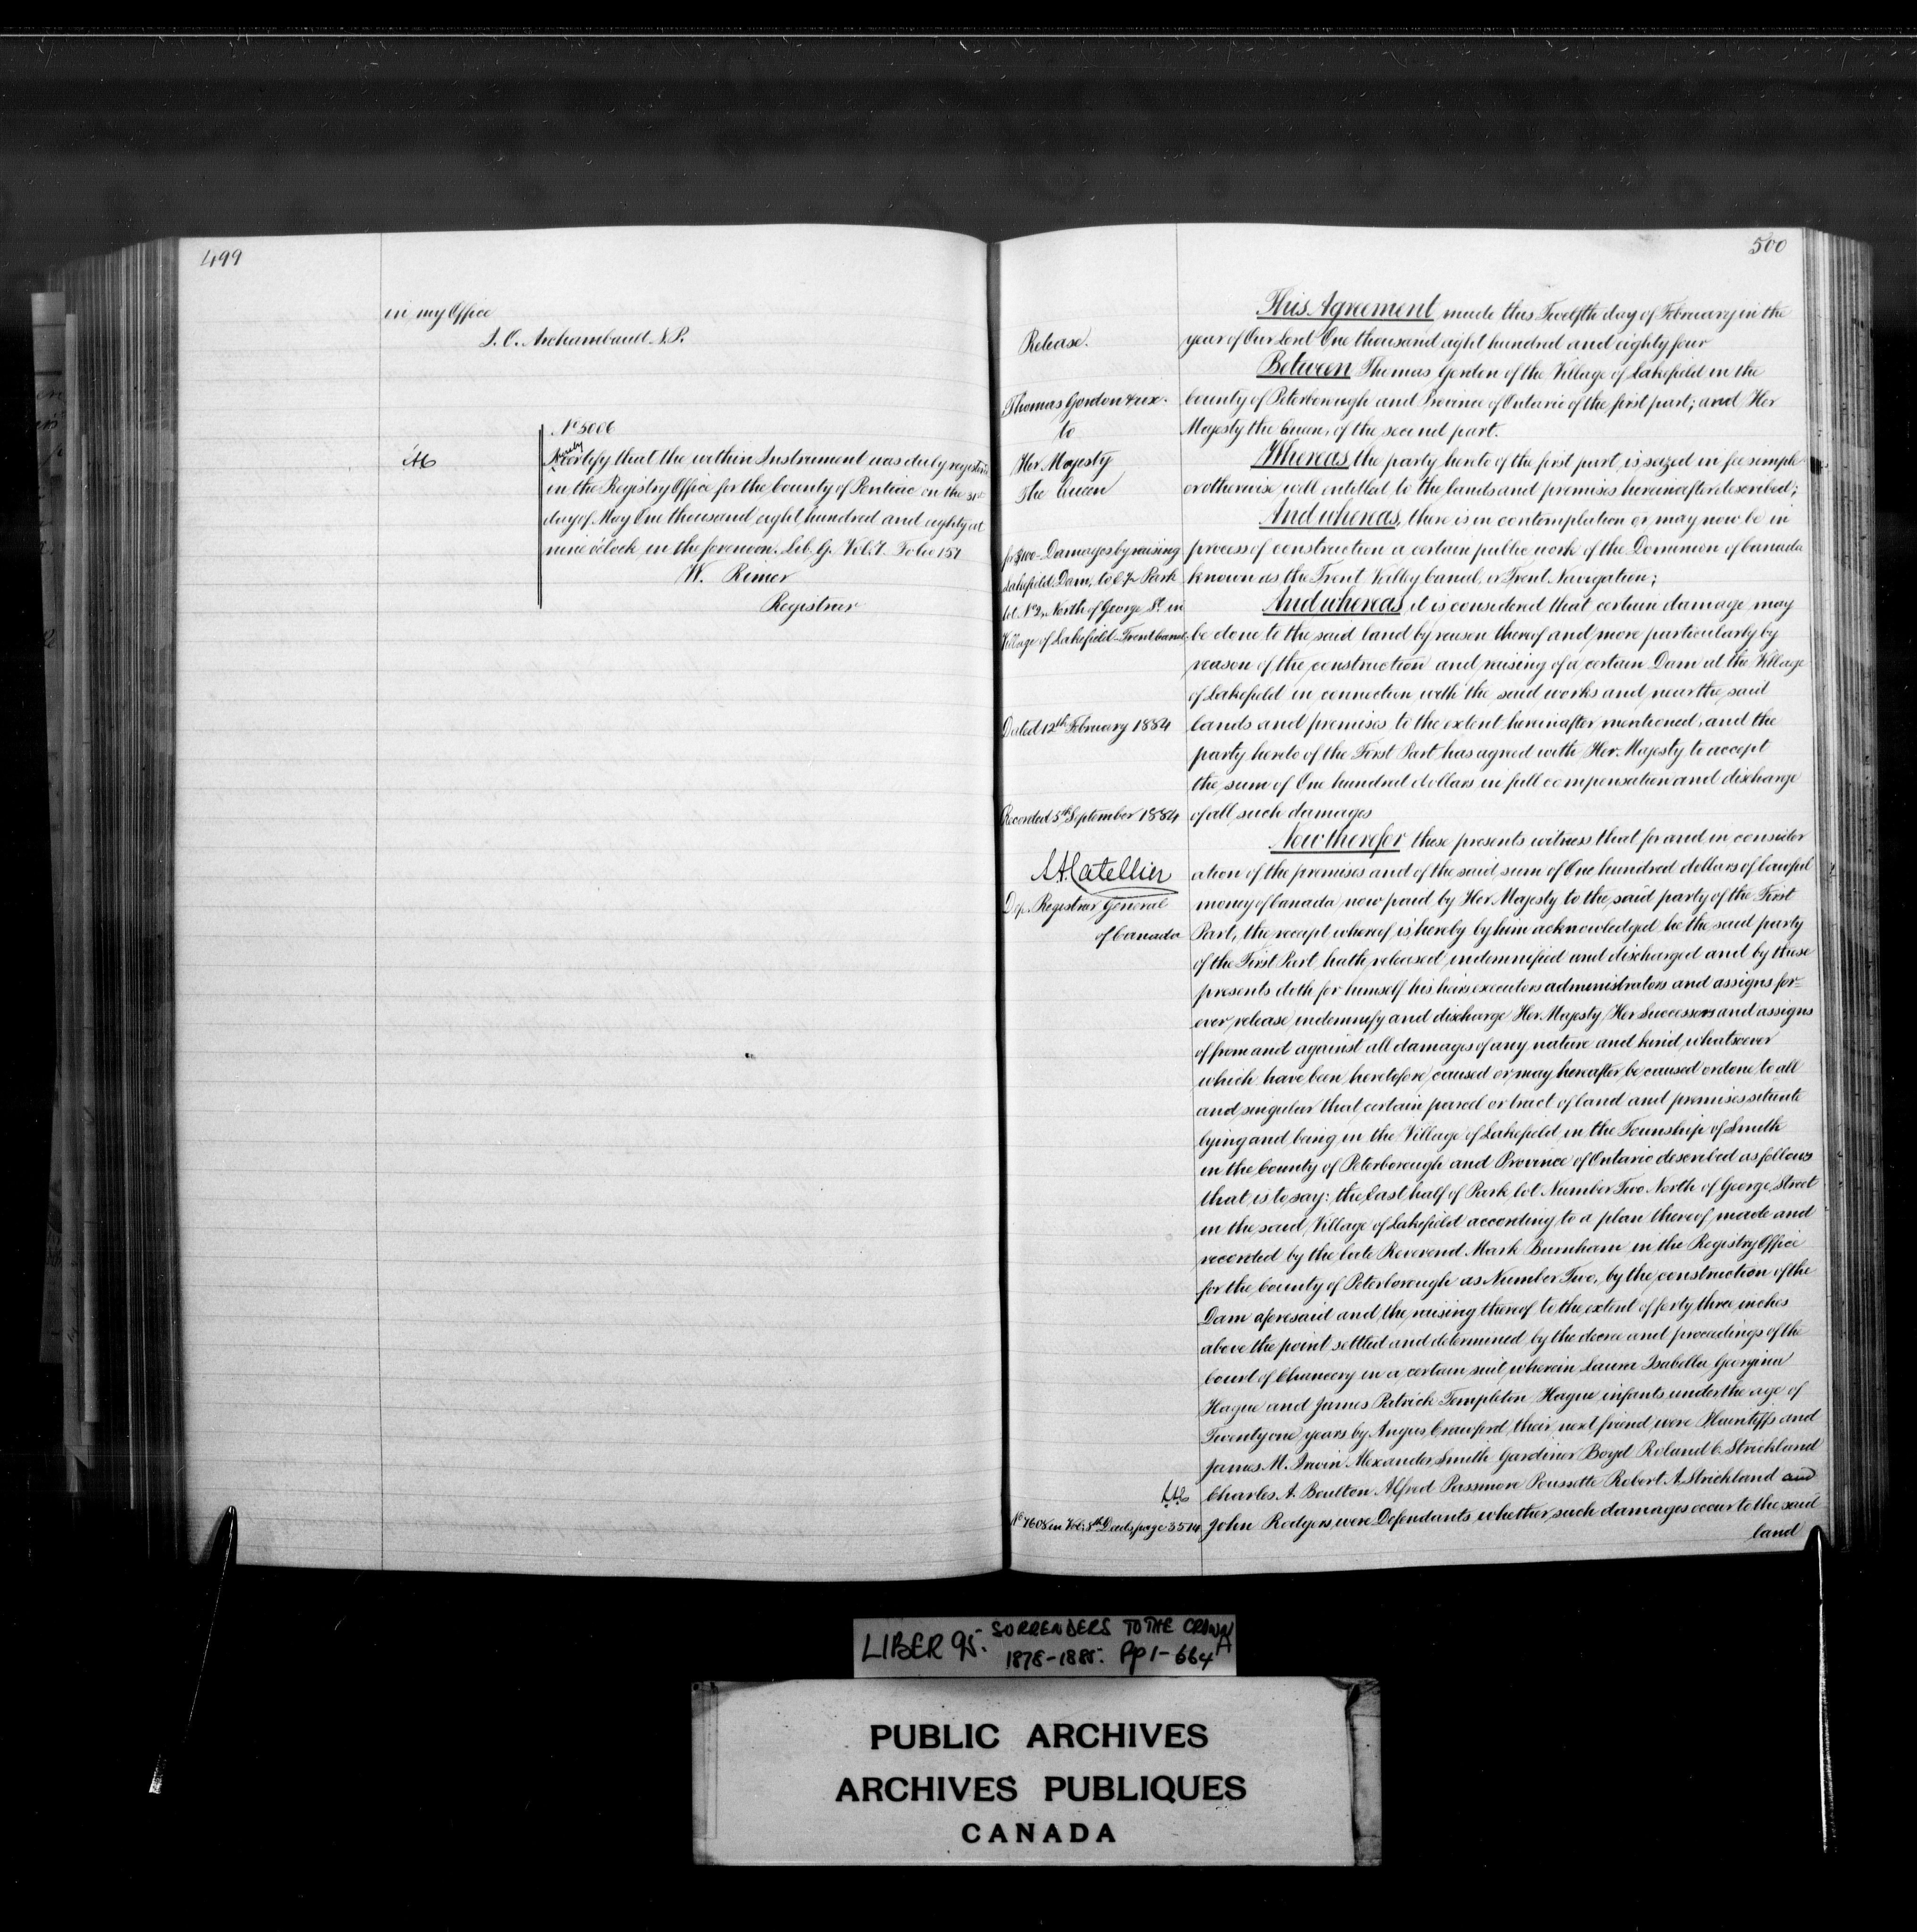 499
in my Office
J. O. Archambault N.P.
No 3006
LAC
I hereby certify that the within Instrument was duly registered
in the Registry Office for the County of Pontiac on the 31st
day of May One thousand eight hundred and eighty at
nine o'clock in the forenoon. Lib. G. Vol. 7. Folio 157
W. Rimer
Registrar
500
Release.
Thomas Gordon & ux.
to
Her Majesty
The Queen
for $100 - Damages by raising
Lakefield Dam, to E ½ Park
lot No 2 North of George St. in
Village of Lakefield - Trent Canal
Dated 12th February 1884
Recorded 5th September 1884
L A Catellier
Dep. Registrar General
of Canada
LAC
No 7608 in Vol. 8th Deeds page 3514
This Agreement made this Twelfth day of February in the
year of Our Lord One thousand eight hundred and eighty four
Between Thomas Gordon of the Village of Lakefield in the
County of Peterborough and Province of Ontario of the first part; and Her
Majesty the Queen, of the second part.
Whereas the party hereto of the first part, is seized in fee simple
or otherwise well entitled to the lands and premises hereinafter described;
And whereas, there is in contemplation or may now be in
process of construction a certain public work of the Dominion of Canada
known as the Trent Valley Canal, or Trent Navigation;
And whereas, it is considered that certain damage may
be done to the said land by reason thereof and more particularly by
reason of the construction and raising of a certain Dam at the Village
of Lakefield in connection with the said works and near the said
lands and premises to the extent hereinafter mentioned, and the
party hereto of the First Part has agreed with Her Majesty to accept
the sum of One hundred dollars in full compensation and discharge
of all such damages
Now therefor these presents witness that for and in consider
ation of the premises and of the said sum of One hundred dollars of lawful
money of Canada now paid by Her Majesty to the said party of the First
Part, the receipt whereof is hereby by him acknowledged he the said party
of the First Part hath released indemnified and discharged and by these
presents doth for himself his heirs executors administrators and assigns for=
ever release indemnify and discharge Her Majesty Her Successors and assigns
of from and against all damages of any nature and kind whatsoever
which have been heretofore caused or may hereafter be caused or done to all
and singular that certain parcel or tract of land and premises situate
lying and being in the Village of Lakefield in the Township of Smith
in the County of Peterborough and Province of Ontario described as follows
that is to say: the East half of Park lot Number Two North of George Street
in the said Village of Lakefield according to a plan thereof made and
recorded by the late Reverend Mark Burnham in the Registry Office
for the County of Peterborough as Number Two, by the construction of the
Dam aforesaid and the raising thereof to the extent of forty three inches
above the point settled and determined by the decree and proceedings of the
Court of Chancery in a certain suit wherein Laura Isabella Georgina
Hague and James Patrick Templeton Hague infants under the age of
Twenty one years by Angus Crawford their next friend were Plaintiffs and
James M. Irwin Alexander Smith Gardiner Boyd Roland C. Strickland
Charles A. Boulton Alfred Passmore Poussette Robert A. Strickland and
John Rodgers were Defendants whether such damages occur to the said
land
LIBER 95. SURRENDERS TO THE CROWN
1878-1885. Pp 1-664A
PUBLIC ARCHIVES
ARCHIVES PUBLIQUES
CANADA